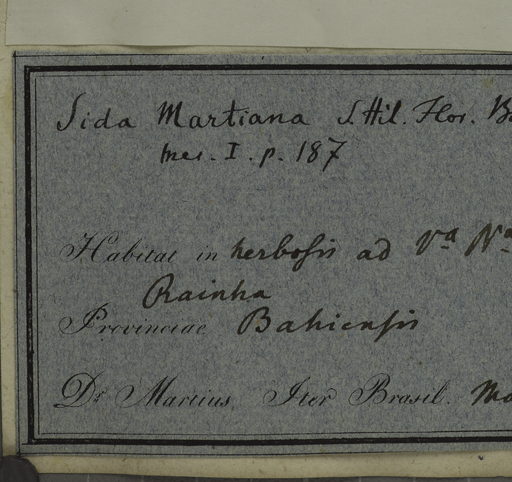 Sida Martiana S. Hil. Flor. B
mer. I. p. 187
Habitat in herbosis ad Va Na
Rainha
Provinciae Bahiensis
Dr. Martius Iter Brasil. Ma